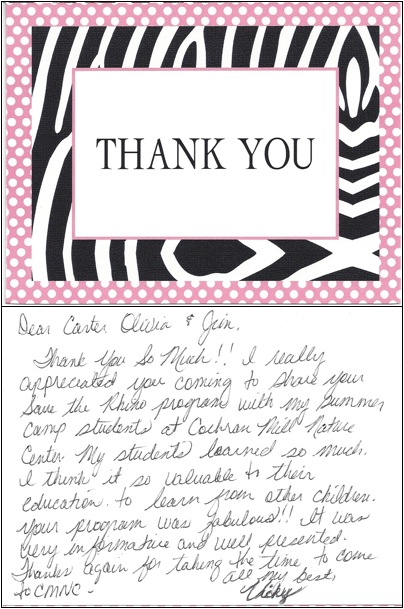 THANK YOU
Dear Carter Olivia & Jim,
Thank You So Much!! I really
appreciated you coming to share your
Save the Rhino program with my Summer
Camp students at Cochran Mill Nature
Center. My students learned so much.
I think it so valuable to their
education. to learn from other children.
Your program was fabulous!! It was
very informative and well presented.
Thanks again for taking the time, to come
to CMNC -
all my best,
Vicky